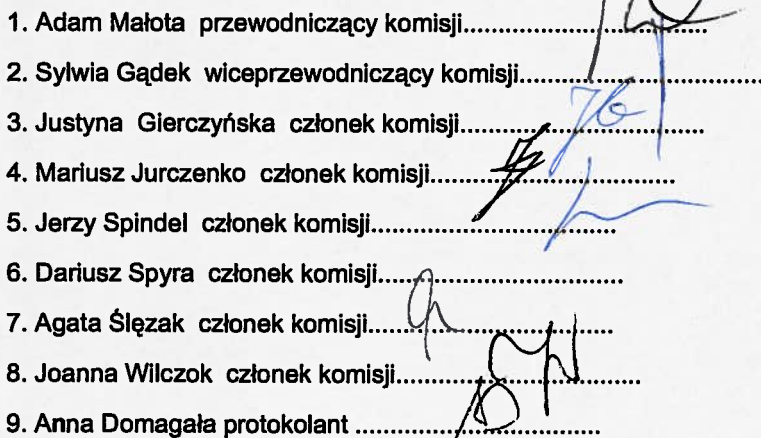 1. Adam Małota przewodniczący komisji..............................
2. Sylwia Gądek wiceprzewodniczący komisji..............................
3. Justyna Gierczyńska członek komisji..............................
4. Mariusz Jurczenko członek komisji..............................
5. Jerzy Spindel członek komisji..............................
6. Dariusz Spyra członek komisji..............................
7. Agata Ślęzak członek komisji..............................
8. Joanna Wilczok członek komisji..............................
9. Anna Domagała protokolant ..............................